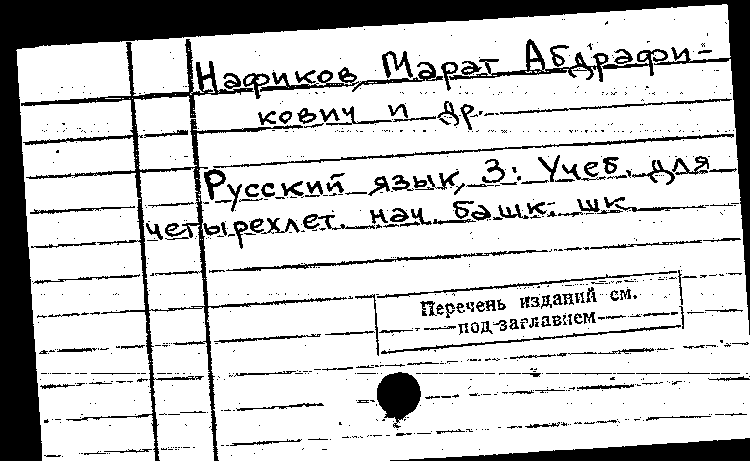 Нафиков, Марат Абдрафи-
кович и др.
Русский язык, 3: Учеб. для
четырехлет. нач. башк. шк.
Перечень изданий см.
под заглавием